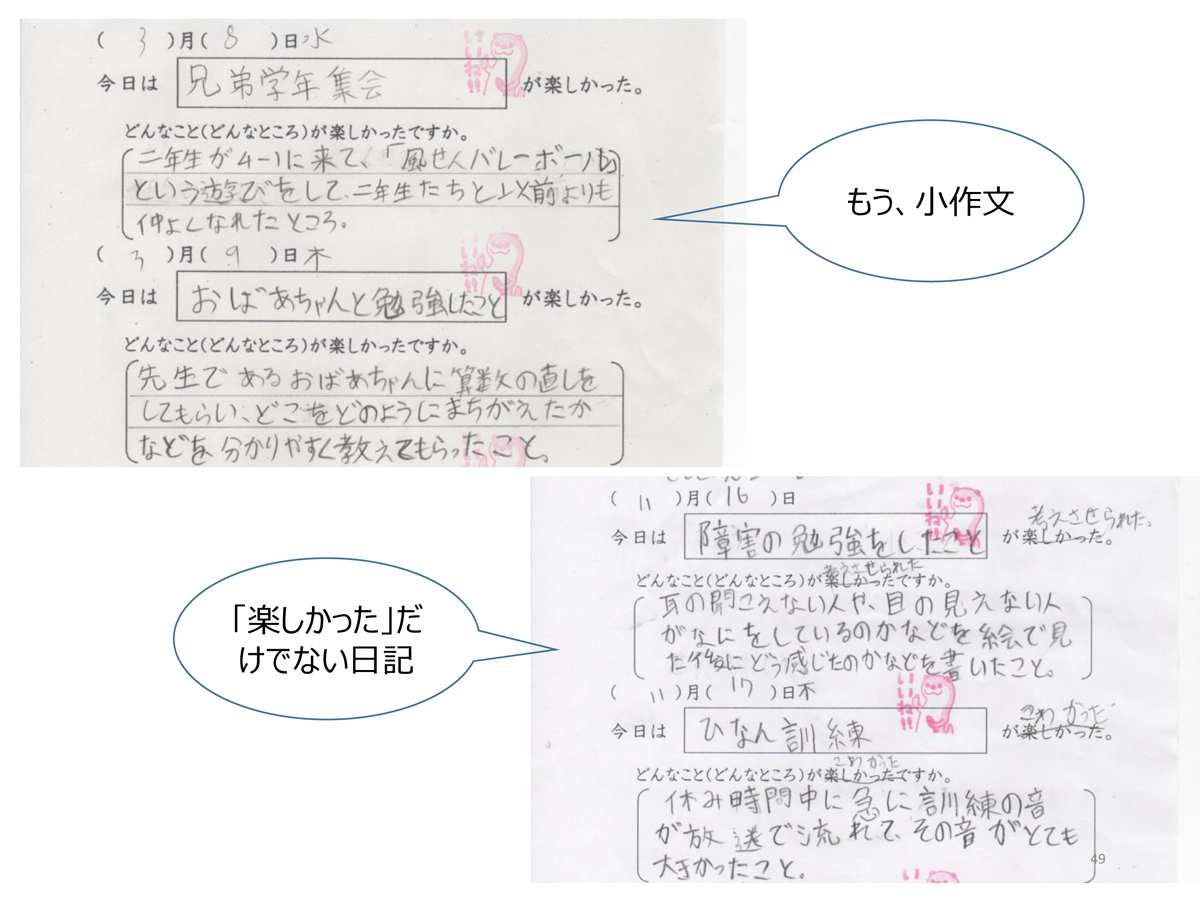 ( 3 )月( 8 )日水
いいね!!
今日は 兄弟学年集会 が楽しかった。
どんなこと(どんなところ)が楽しかったですか。
二年生が4-1に来て、「風せんバレーボール」
という遊びをして、二年生たちと以前よりも
仲よくなれたところ。
もう、小作文
( 3 )月( 9 )日木
いいね!!
今日は おばあちゃんと勉強したこと が楽しかった。
どんなこと(どんなところ)が楽しかったですか。
先生であるおばあちゃんに算数の直しを
してもらい、どこをどのようにまちがえたか
などを分かりやすく教えてもらったこと。
( 11 )月( 16 )日
いいね!!
考えさせられた。
今日は 障害の勉強をしたこと が楽しかった。
考えさせられた
どんなこと(どんなところ)が楽しかったですか。
耳の聞こえない人や、目の見えない人
がなにをしているのかなどを絵で見
た後にどう感じたのかなどを書いたこと。
「楽しかった」だ
けでない日記
( 11 )月( 17 )日木
いいね!!
こわかった
今日は ひなん訓練 が楽しかった。
こわかった
どんなこと(どんなところ)が楽しかったですか。
休み時間中に急に訓練の音
が放送で流れて、その音がとても
大きかったこと。
49